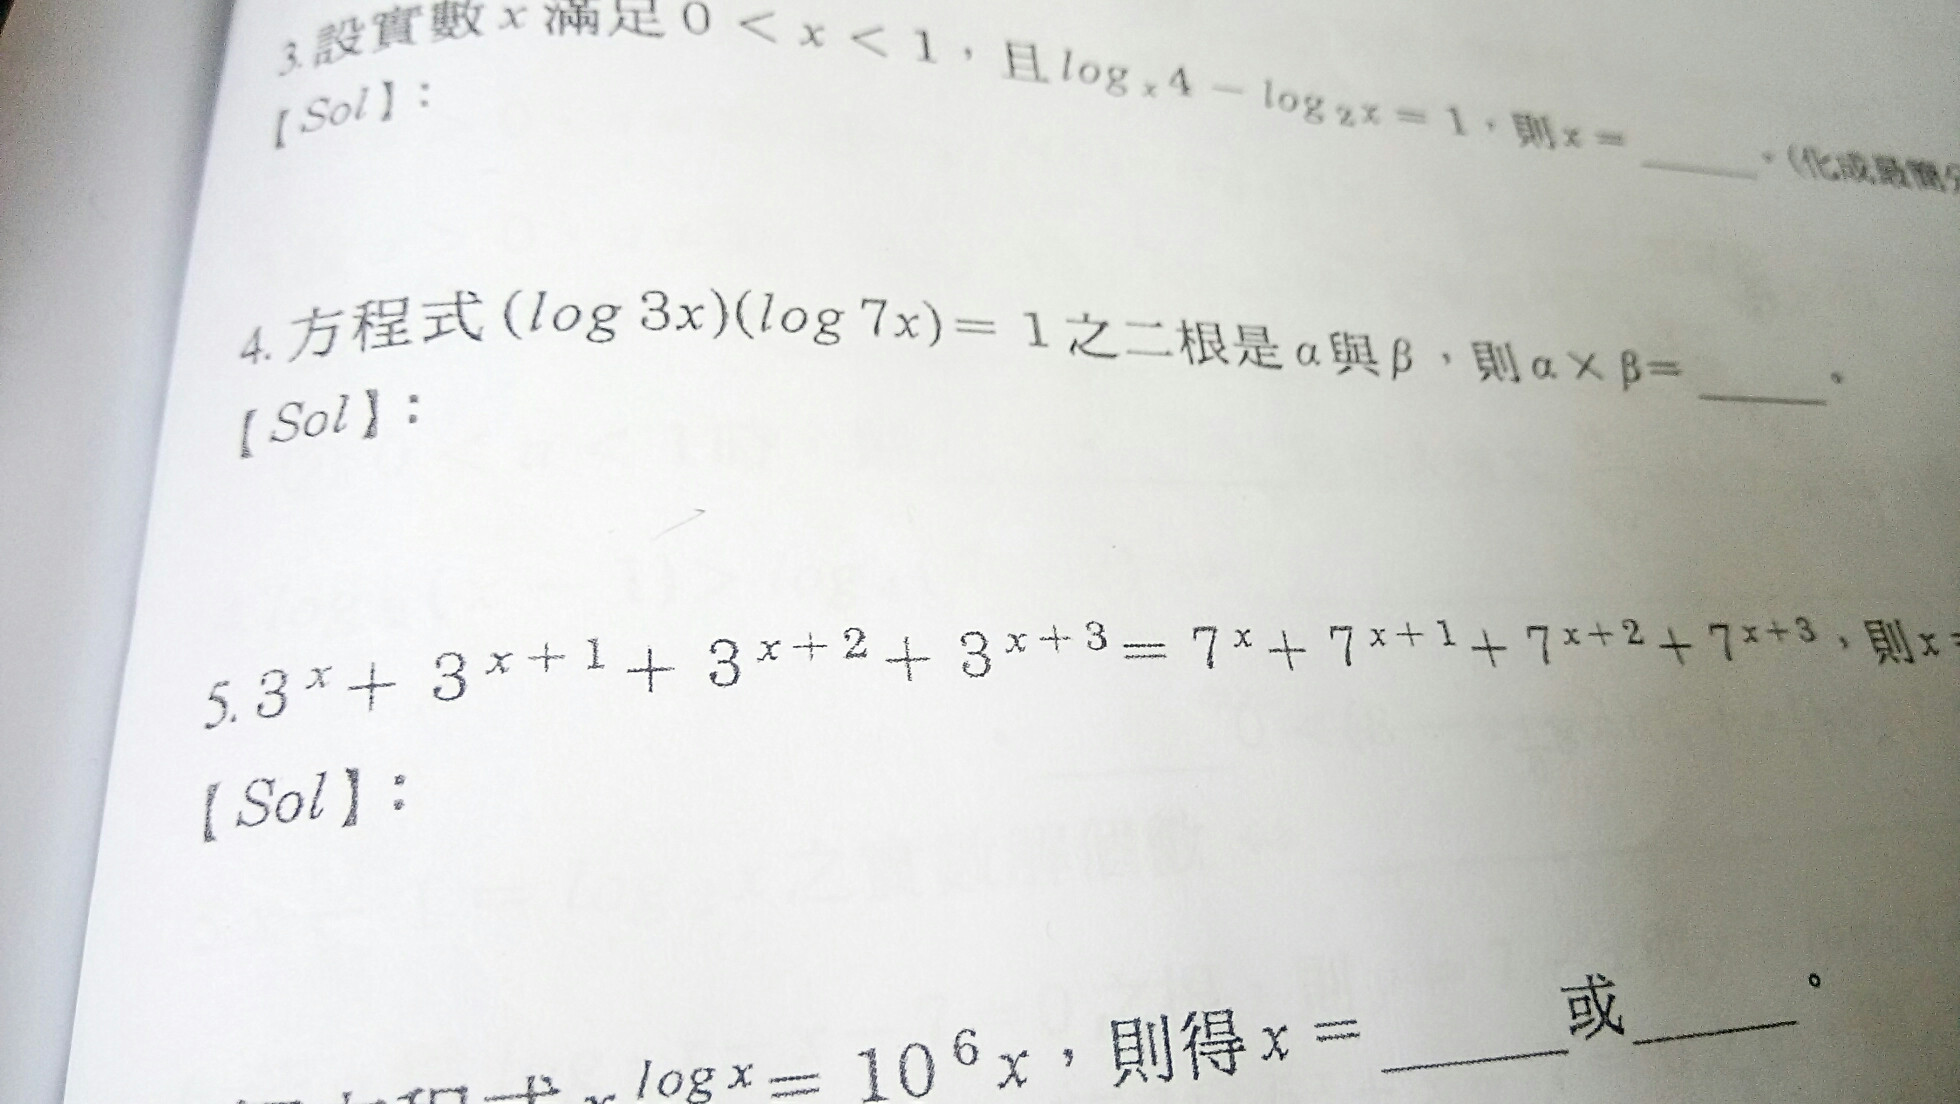 3. 設實數 x 滿足 0 < x < 1，且 log ₓ 4 − log ₂x = 1，則 x = ____。(化成最簡
【Sol】：
4. 方程式 (log 3x)(log 7x) = 1 之二根是 α 與 β，則 α × β= ____。
【Sol】：
5. 3ˣ + 3ˣ⁺¹ + 3ˣ⁺² + 3ˣ⁺³ = 7ˣ + 7ˣ⁺¹ + 7ˣ⁺² + 7ˣ⁺³，則 x =
【Sol】：
x^log x = 10⁶x，則得 x = ____或____。